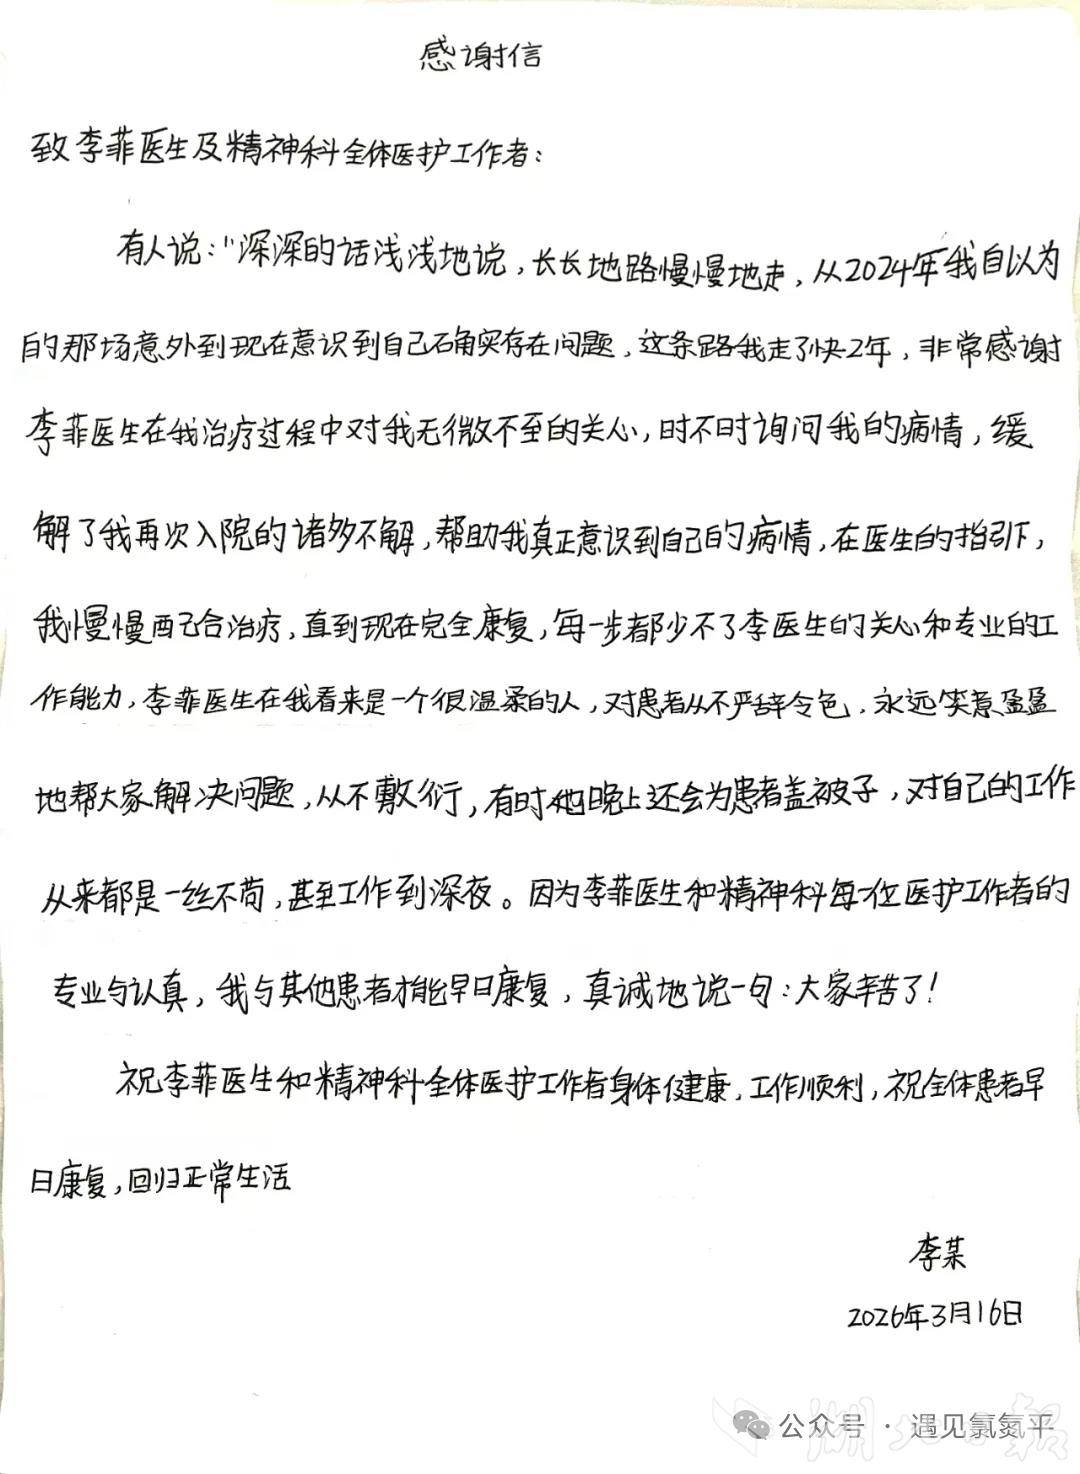 感谢信
致李菲医生及精神科全体医护工作者：
有人说：“深深的话浅浅地说，长长地路慢慢地走，从2024年我自以为
的那场意外到现在意识到自己确实存在问题，这条路我走了快2年，非常感谢
李菲医生在我治疗过程中对我无微不至的关心，时不时询问我的病情，缓
解了我再次入院的诸多不解，帮助我真正意识到自己的病情，在医生的指引下，
我慢慢配合治疗，直到现在完全康复，每一步都少不了李医生的关心和专业的工
作能力，李菲医生在我看来是一个很温柔的人，对患者从不严辞令色，永远笑意盈盈
地帮大家解决问题，从不敷衍，有时她晚上还会为患者盖被子，对自己的工作
从来都是一丝不苟，甚至工作到深夜。因为李菲医生和精神科每一位医护工作者的
专业与认真，我与其他患者才能早日康复，真诚地说一句：大家辛苦了！
祝李菲医生和精神科全体医护工作者身体健康，工作顺利，祝全体患者早
日康复，回归正常生活
李某
2026年3月16日
公众号 · 遇见氯氮平
湖北日报